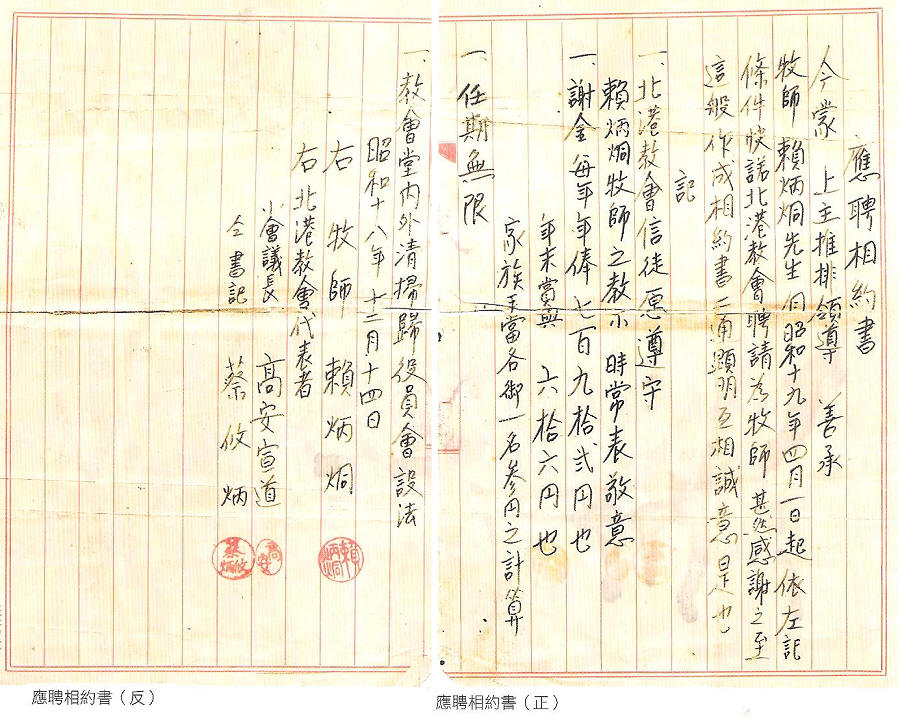 應聘相約書
今蒙 上主推排領導 善承
牧師 賴炳烔先生 自昭和十九年四月一日起 依左記
條件快諾北港教會聘請為牧師 甚然感謝之至
這般作成相約書二通顯明互相誠意是也
記
一、北港教會信徒愿遵守
賴炳烔牧師之教示 時常表敬意
一、謝金每年年俸七百九拾貳円也
年末賞與 六拾六円也
家族手當各御一名參円之計算
一、任期無限
一、教會堂內外清掃歸役員會設法
昭和十八年 十二月十四日
右 牧師 賴炳烔
右北港教會代表者
小會議長 高安宣道
仝書記 蔡攸炳
賴炳烔
高安
蔡攸炳
應聘相約書（反）
應聘相約書（正）